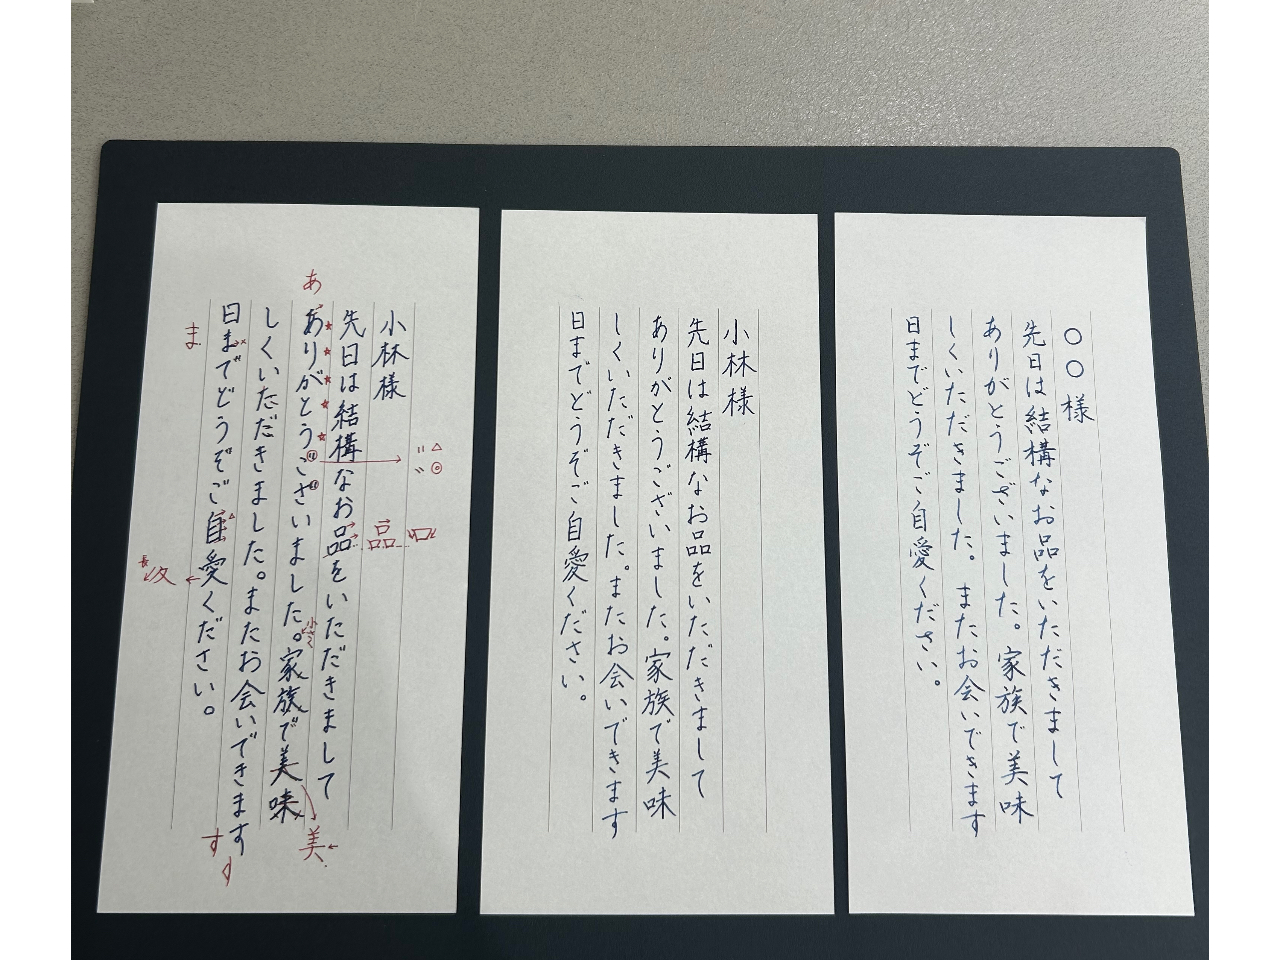 ○○様
先日は結構なお品をいただきまして
ありがとうございました。家族で美味
しくいただきました。またお会いできます
日までどうぞご自愛ください。
小林様
先日は結構なお品をいただきまして
ありがとうございました。家族で美味
しくいただきました。またお会いできます
日までどうぞご自愛ください。
小林様
先日は結構なお品をいただきまして
ありがとうございました。家族で美味
しくいただきました。またお会いできます
日までどうぞご自愛ください。
あ
ま
品
小さく
美
す
長